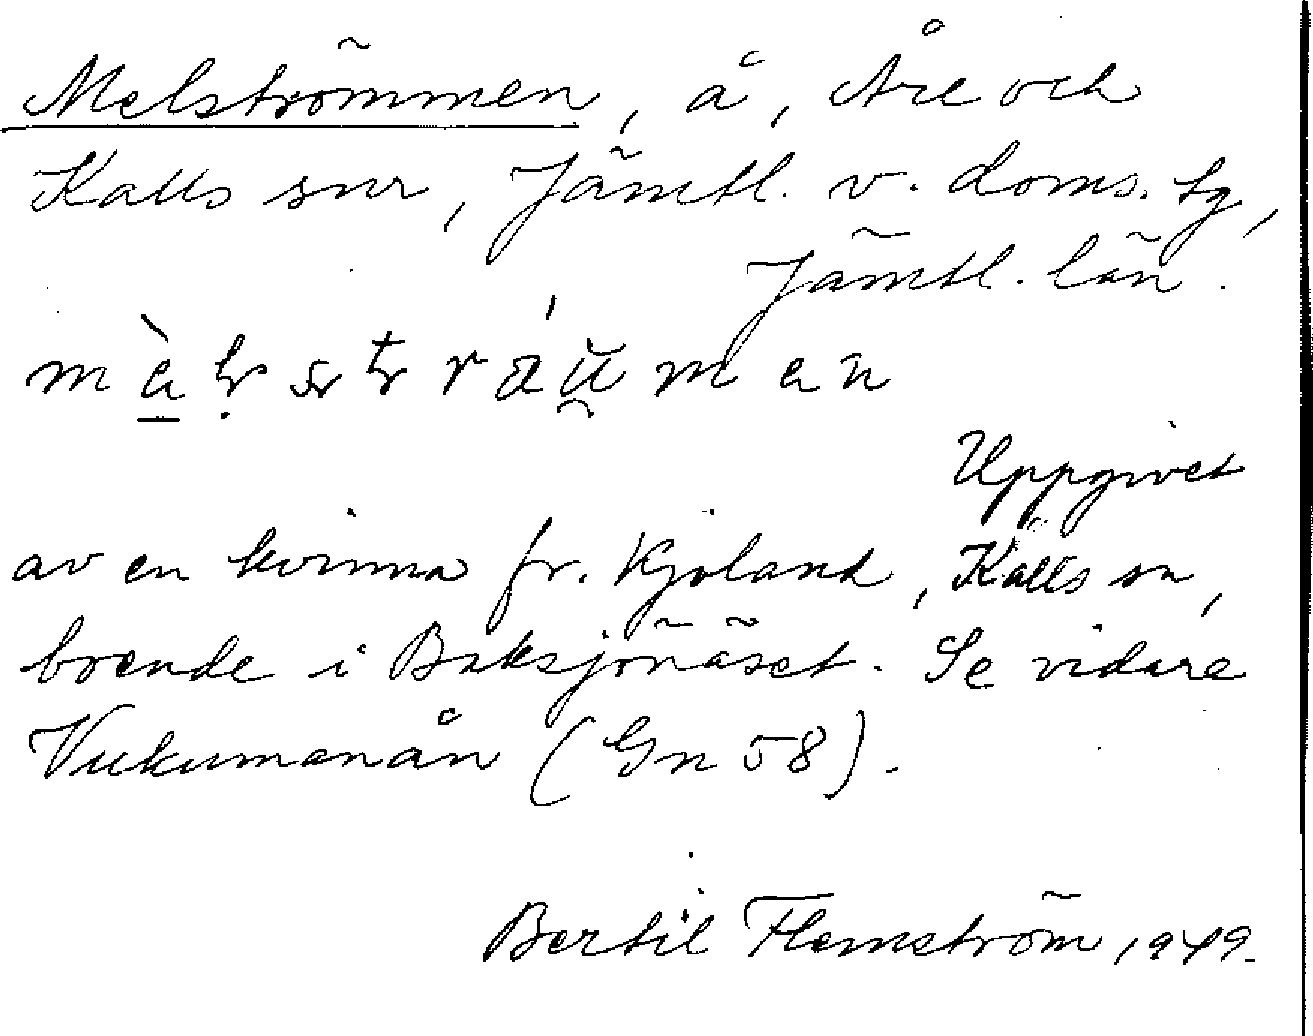 Melströmmen, å, Åre och
Kalls snr, Jämtl. v. doms. tg,
Jämtl. län.
Uppgivet
av en kvinna fr. Kjoland, Kalls sn,
boende i Baksjönäset. Se vidare
Vukumanån (Gn 58).
Bertil Flemström, 1949.